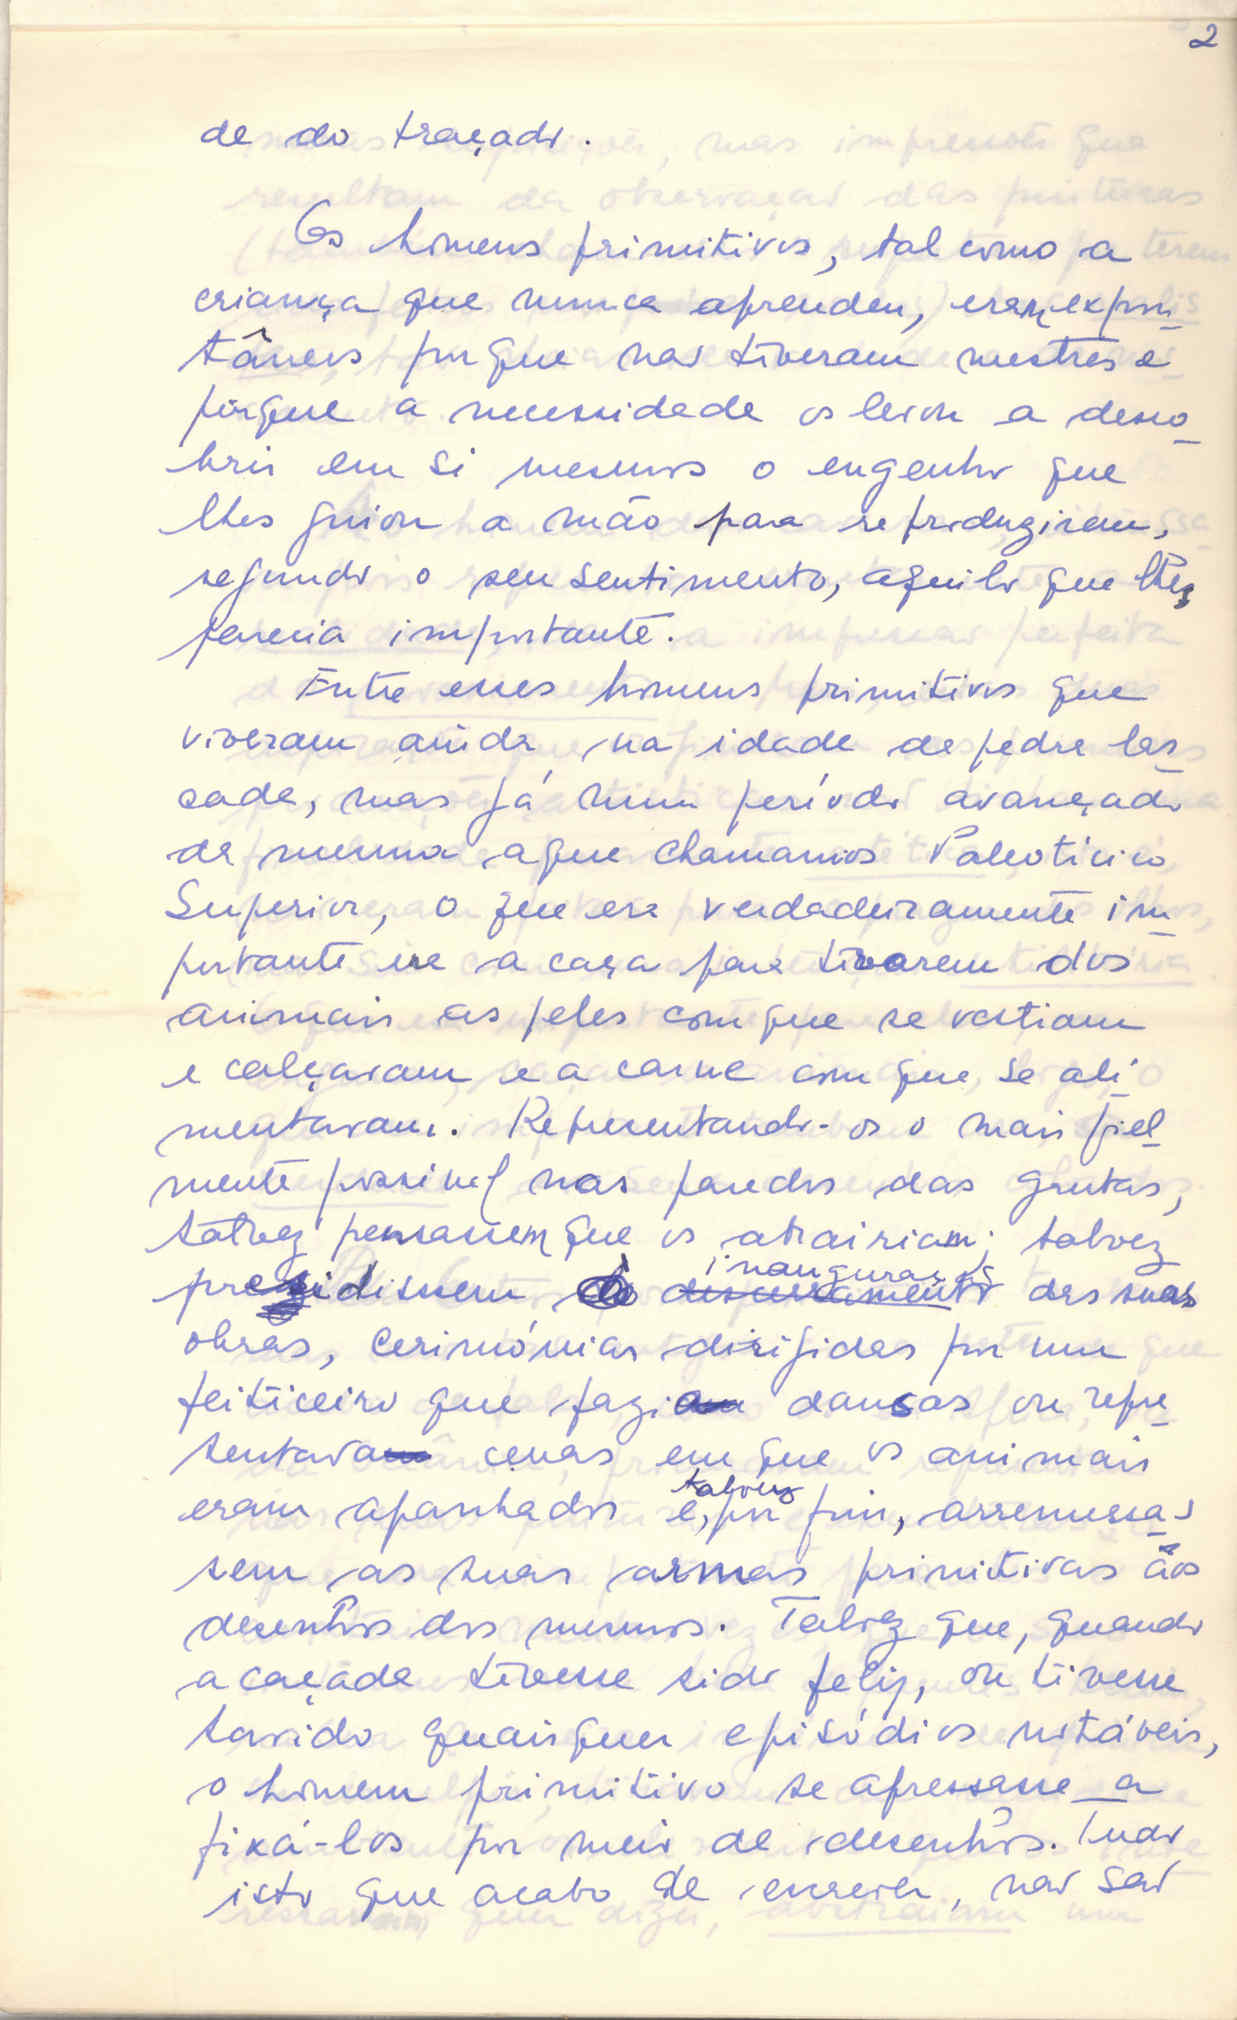 2
de do traçado.
Os homens primitivos, tal como a
criança que nunca aprendeu, eram expon
tâneos porque não tiveram mestres e
porque a necessidade os levou a desco
brir em si mesmos o engenho que
lhes guiou a mão para reproduziram,
segundo o seu sentimento, aquilo que lhes
parecia importante.
Entre esses homens primitivos que
viveram ainda na idade da pedra las
cada, mas já num período avançado
da mesma a que chamamos Paleolítico
Superior, o que era verdadeiramente im
portante era a caça para tirarem dos
animais as peles com que se vestiam
e calçavam e a carne com que se ali
mentavam. Representando-os o mais fiel
mente possível nas paredes das grutas,
talvez pensassem que os atrairiam; talvez
inaugurações
presidissem às descerramento das suas
obras, cerimónias dirigidas por um
feiticeiro que fazia dansas ou repre
sentava cenas em que os animais
talvez
eram apanhados e, por fim, arremessas
sem as suas armas primitivas aos
desenhos dos mesmos. Talvez que, quando
a caçada tivesse sido feliz, ou tivesse
havido quaisquer episódios notáveis,
o homem primitivo se apressasse a
fixá-los por meio de desenhos. Tudo
isto que acabo de escrever, não são